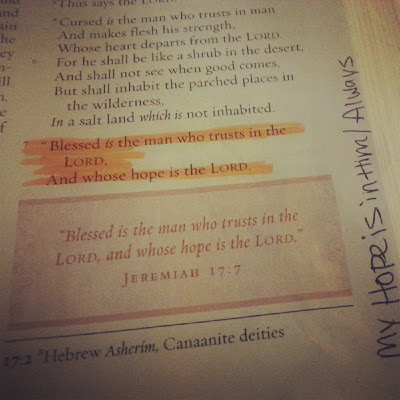 Thus says the LORD:
"Cursed is the man who trusts in man
And makes flesh his strength,
Whose heart departs from the LORD.
6 For he shall be like a shrub in the desert,
And shall not see when good comes,
But shall inhabit the parched places in
the wilderness,
In a salt land which is not inhabited.
7 "Blessed is the man who trusts in the
LORD,
And whose hope is the LORD.
"Blessed is the man who trusts in the
LORD, and whose hope is the LORD."
JEREMIAH 17:7
17:2 ᵃHebrew Asherim, Canaanite deities
My Hope is in Him / Always